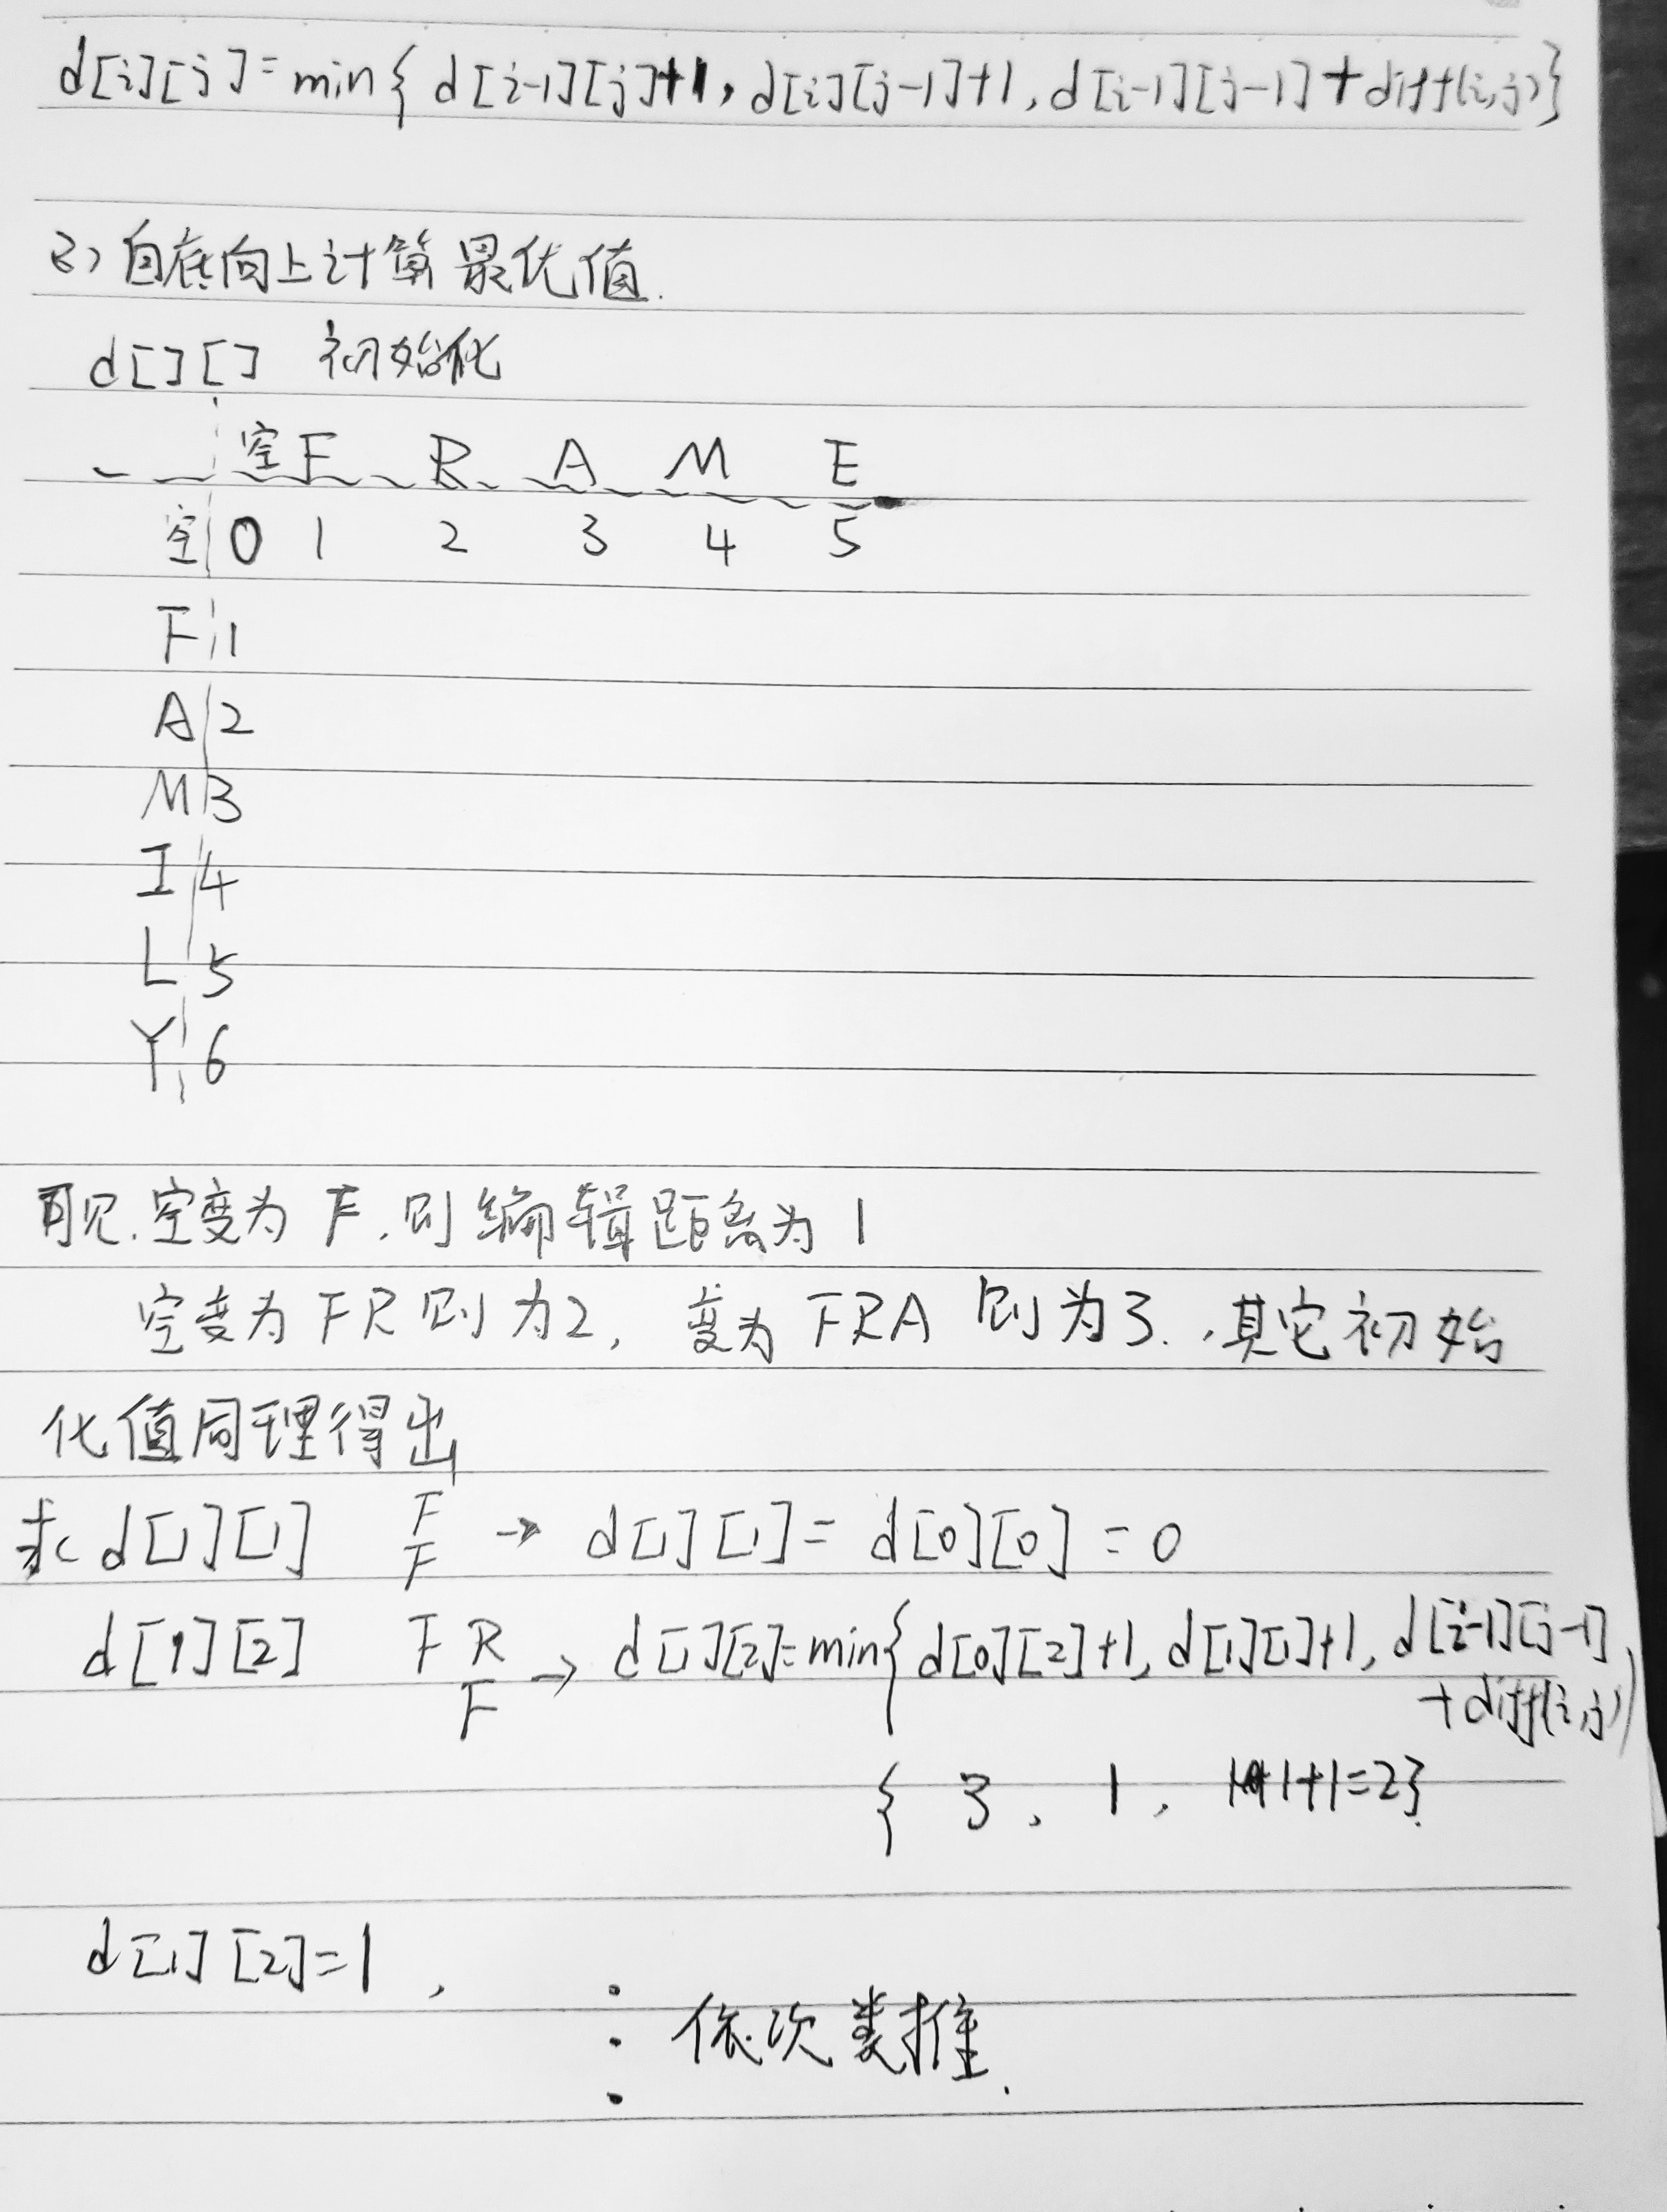 d[i][j]=min{ d[i-1][j]+1, d[i][j-1]+1, d[i-1][j-1]+diff(i,j)}
3) 自底向上计算最优值.
d[][] 初始化
空 F R A M E
空 0 1 2 3 4 5
F 1
A 2
M 3
I 4
L 5
Y 6
可见.空变为 F.则编辑距离为 1
空变为 FR 则为2, 变为 FRA 则为3.,其它初始
化值同理得出
求 d[1][1] F F → d[1][1]= d[0][0] = 0
d[1][2] F R F → d[1][2]=min{ d[0][2]+1, d[1][1]+1, d[i-1][j-1]
+diff(i,j)}
{ 3, 1, 1+1=2}
d[1][2]=1,
⋮ 依次类推.